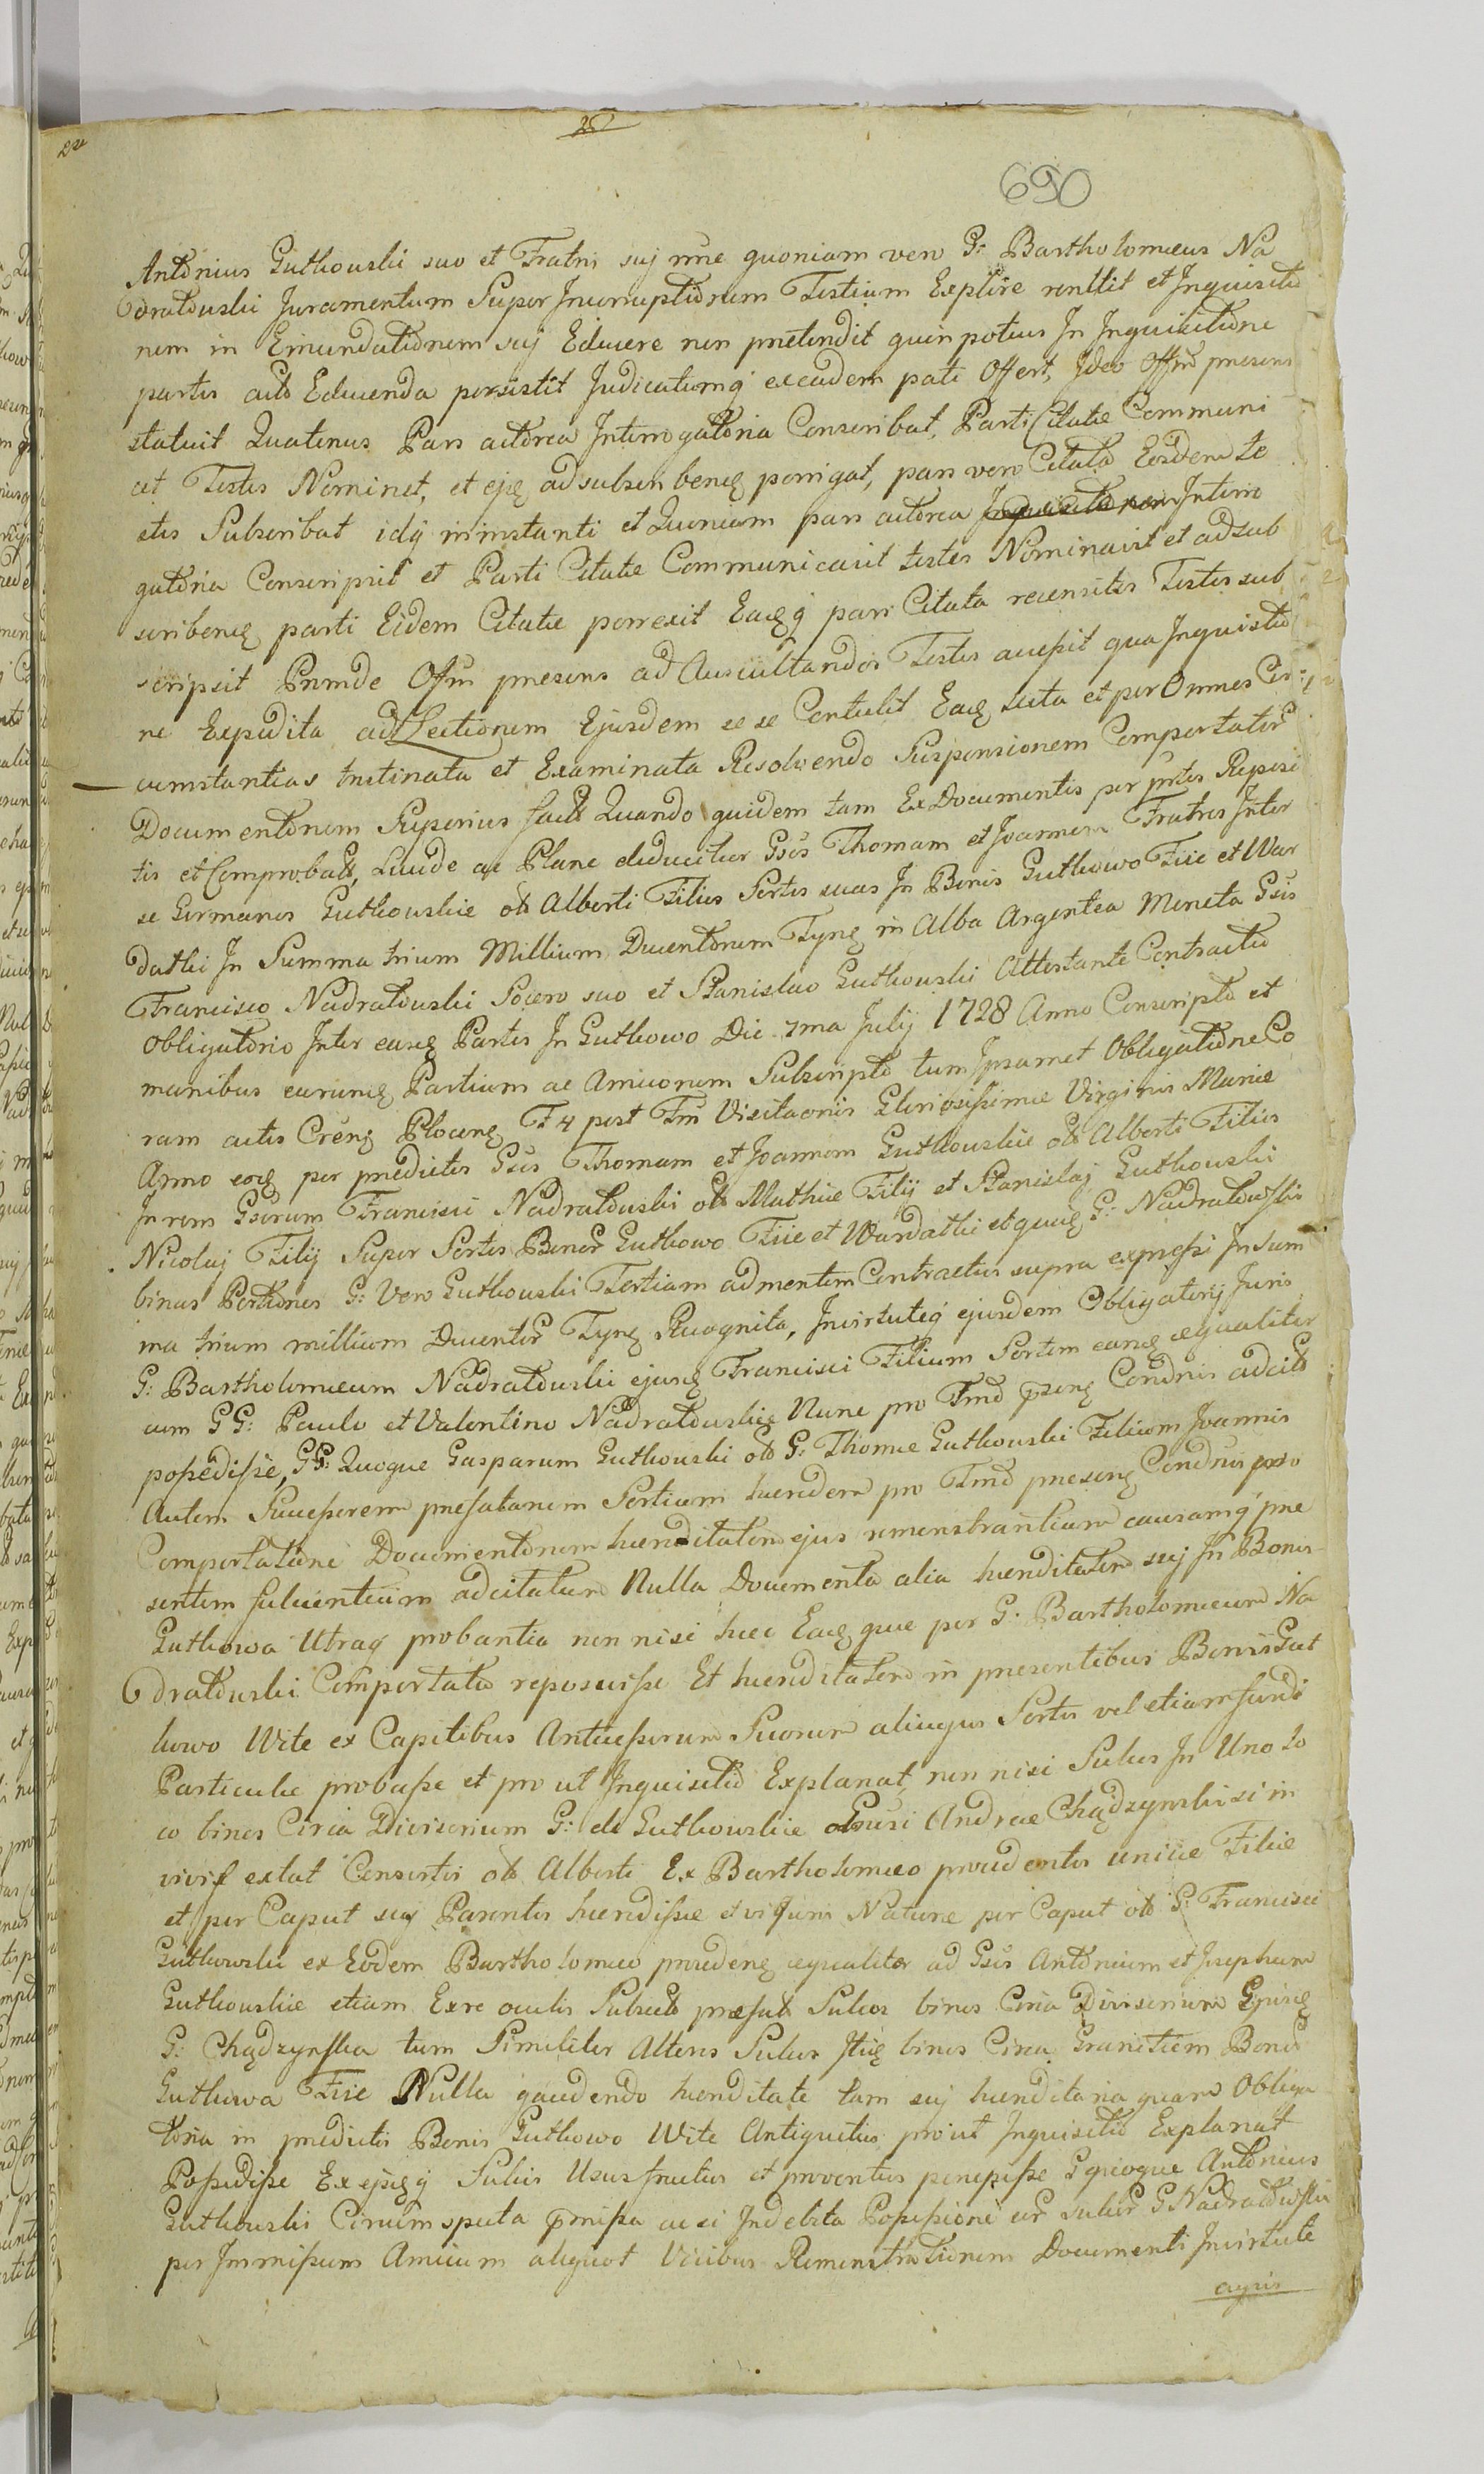 28
690
Antonius Gutkowski suo et Fratris suj nne quoniam vero G: Bartholomæus Na
dratowski Juramentum Super Incorruptionem Testium Explere renttit et Inquisitio
nem in Emundationem suj Educere non prætendit quin potius In Inquisitione
partis acto Educenda persistit Judicatumq ex eadem pati Offert, Ideo Offm præsens
statuit Quatenus Pars actorea Interrogatoria Conscribat, Parti Citatæ Communi
cet Testes Nominet, et ejsq ad subscribenq porrigat, pars vero Citata Eosdem te
stes Subscribat idq in instanti et Quoniam pars actorea Interro
gatoria Conscripsit et Parti Citatæ Communicavit testes Nominavit et ad sub
scribenq parti Eidem Citatæ porrexit Eaqq pars Citata recensitos Testes sub
scripsit Proinde Offm præsens ad Auscultandos Testes accessit qua Inquisitio
ne Expedita ad Lectionem Ejusdem se se Contulit Eaq lecta et per Omnes Cir
cumstantias trutinata et Examinata Resolvendo Suspensionem Comportator
Documentorum Superius facto Quando quidem tam Ex Documentis per prtes Reposi
tis et Comprobatis, Luude ac Plane deducitur Gsos Thomam et Joannem Fratres Inter
se Germanos Gutkowskie olo Alberti Filios Sortes suas In Bonis Gutkowo Fiie et War
datki In Summa trium Millium Ducentorum Tynq in Alba Argentea Moneta Gsis
Francisco Nadratowski Socero suo et Stanislao Gutkowski Attestante Contractu
Obligatorio Inter easq Partes In Gutkowo Die 7ma Julij 1728 Anno Conscripto et
manibus earumq Partium ac Amicorum Subscripto tum Ipsamet Obligatione Co
ram actis Crenq Plocenq F 4 post Fm Visitaonis Gloriosissimæ Virginis Mariæ
Anno eoq per prædictos Gsos Thomam et Joannem Gutkowskie olo Alberti Filios
In rem Gsorum Francisci Nadratowski olo Mathiæ Filij et Stanislaj Gutkowski
Nicolaj Filij Super Sortes Bonor Gutkowo Fiie et Wardatki et quaq G: Nadratowski
binas Portiones G: Vero Gutkowski Tertiam ad mentem Contractus supra expressi In Sum
ma trium millium Ducentor Tynq Recognita, Invirtuteq ejusdem Obligatorij Juris
G: Bartholomæum Nadratowski ejusq Francisci Filium Sortem eamq æqualiter
cum GG: Paulo et Valentino Nadratowskie Nunc pro Tmo przenq Condnis ad cito
possedisse, GG: Quoque Gasparum Gutkowski olo G: Thomæ Gutkowski Filium Joannis
Autem Successorem præfatarum Sortium hæredem pro Tmo præsenq Condnis pro
Comportatione Documentorum hæreditatem ejus remonstrantium causamq præ
sentem fulcientium adcitatum Nulla Documenta alia hæreditatem suj In Bonis
Gutkowa Utraq probantia non nisi hæc Eaq quæ per G: Bartholomæum Na
dratowski Comportata reposuisse Et hæreditatem in præsentibus Bonis Gut
kowo Wite ex Capitibus Antecessorum Suorum alicujus Sortis vel etiam fundi
Particulæ probasse et pro ut Inquisitio Explanat, non nisi Sulcos In Uno lo
co binos Circa Divisorium G: de Gutkowskie Andreæ Chądzynski si in
vivis extat Consortis olo Alberti Ex Bartholomæo procedentis unicæ Filiæ
et per Caput suj Parentis hæredisse et vi Juris Naturæ per Caput olo G: Francisci
Gutkowski ex Eodem Bartholomæo procedenq æqualiter ad Gsos Antonium et Josephum
Gutkowskie etiam Exre oculis Subjecto præfato Sulcos binos Circa Divisorium Ejusq
G: Chądzynska tum Similiter Alteros Sulcos binos Circa Granitiem Bonor
Gutkowa Fiie Nulla gaudendo hæreditate tam suj hæreditaria quam Obliga
toria in prædictis Bonis Gutkowo Wite Antiquitus prout Inquisitio Explanat
Possedisse Ex ejsqq Sulcis Usus fructus et proventus percepisse G quoque Antonius
Gutkowski Circumspecta præmissa ac si Indebita Possessione eor Sulcor G Nadratowski
per Immissum Amicum aliquot Vicibus Remonstrationem Documenti Invirtute
cujus